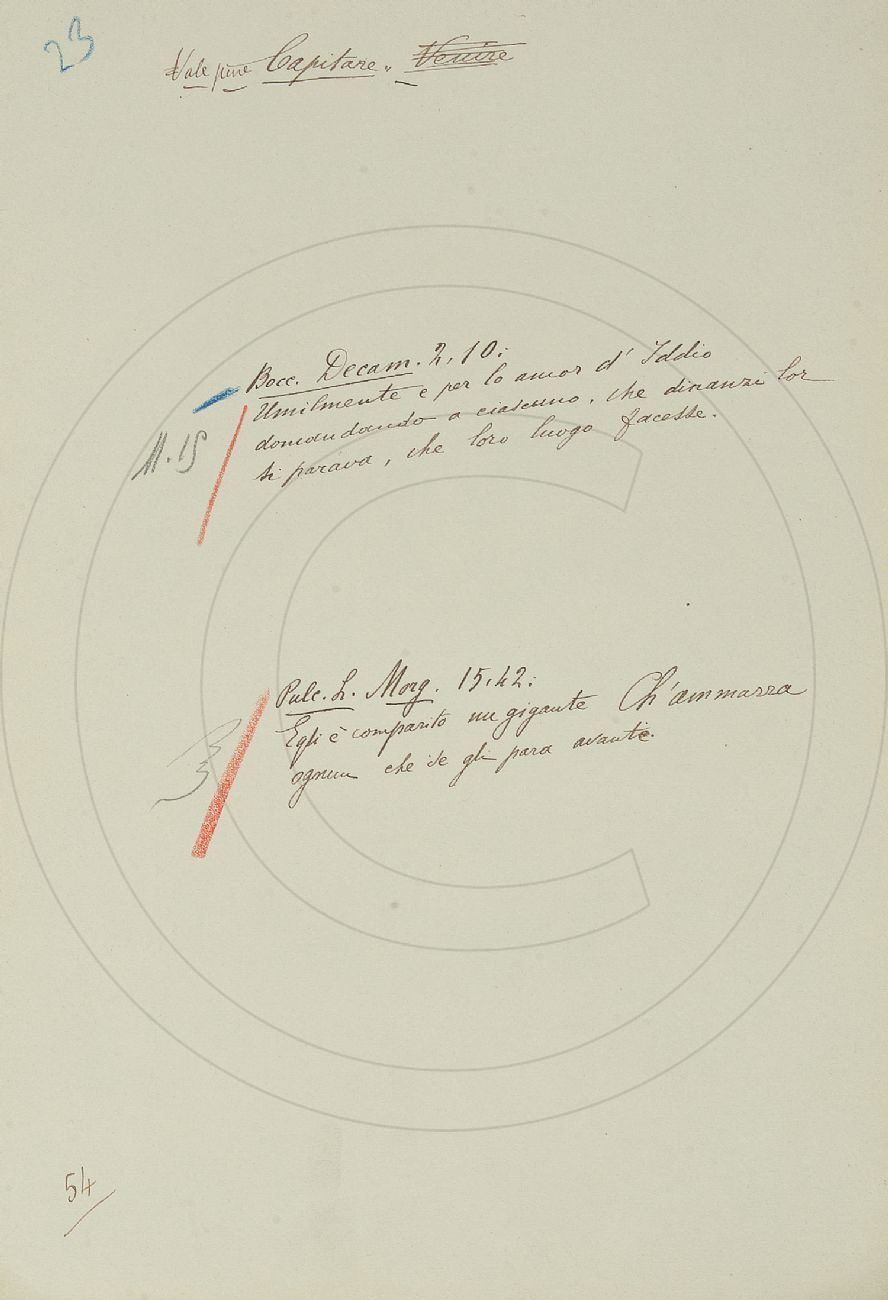 23
Vale pure Capitare, Venire
Bocc. Decam. 2, 10:
Umilmente e per lo amor d' Iddio
domandando a ciascuno, che dinanzi lor
si parava, che loro luogo facesse.
11.15
Pulc. L. Morg. 15.42:
Egli è comparito un gigante Ch'ammazza
ognun che se gli para avante.
54